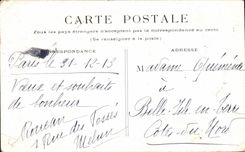 CARTE POSTALE
Tous les pays étrangers n'acceptent pas la correspondance au recto
(Se renseigner à la poste)
CORRESPONDANCE
ADRESSE
Paris le 31-12-13
Vœux et souhaits
de bonheur
Rouéan
8 Rue des Fossés
Melun
Madame Quéméné
à
Belle-Isle-en-Terre
Côtes-du-Nord